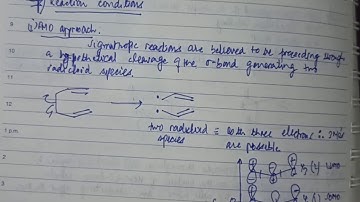 Reaction conditions
9
(i) FMO approach.
Sigmatropic reactions are believed to be proceeding through
10
a hypothetical cleavage of the σ-bond generating two
radicaloid species.
11
12
two radicaloid ≡ with three electrons ∴ 3 MOs
species are possible
1 p.m.
2
3